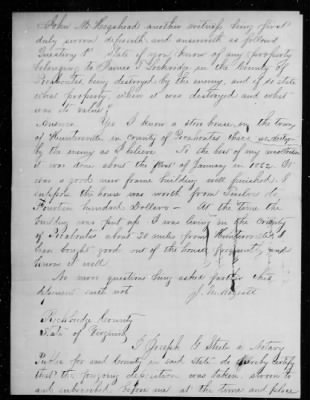 John M. Hogshead another witness being first
duly sworn deposeth and answereth as follows
Question 1st State if you know of any property
belonging to James T. Lockridge in the County of
Pocahontas being destroyed by the enemy, and if so state
what property, when it was destroyed and what
was its value?
Answer Yes I know a store house, in the town
of Huntersville, in county of Pocahontas
by the enemy as I believe To the best of my
it was done about the first of January 1862. It
was a good new frame building well finished. I
suppose the house was worth from Twelve to
Fourteen hundred Dollars— At the time the
building was put up I was living in the County
of Pocahontas about 20 miles from Huntersville. I
have bought goods out of the house frequently and
know it well
No more questions being asked further this
deponent saith not
J. M.
Rockbridge County
State of Virginia
I Joseph G. Steele a Notary
Public for said County in said State do hereby certify
that the foregoing deposition was taken, sworn to
and subscribed before me at the time and place